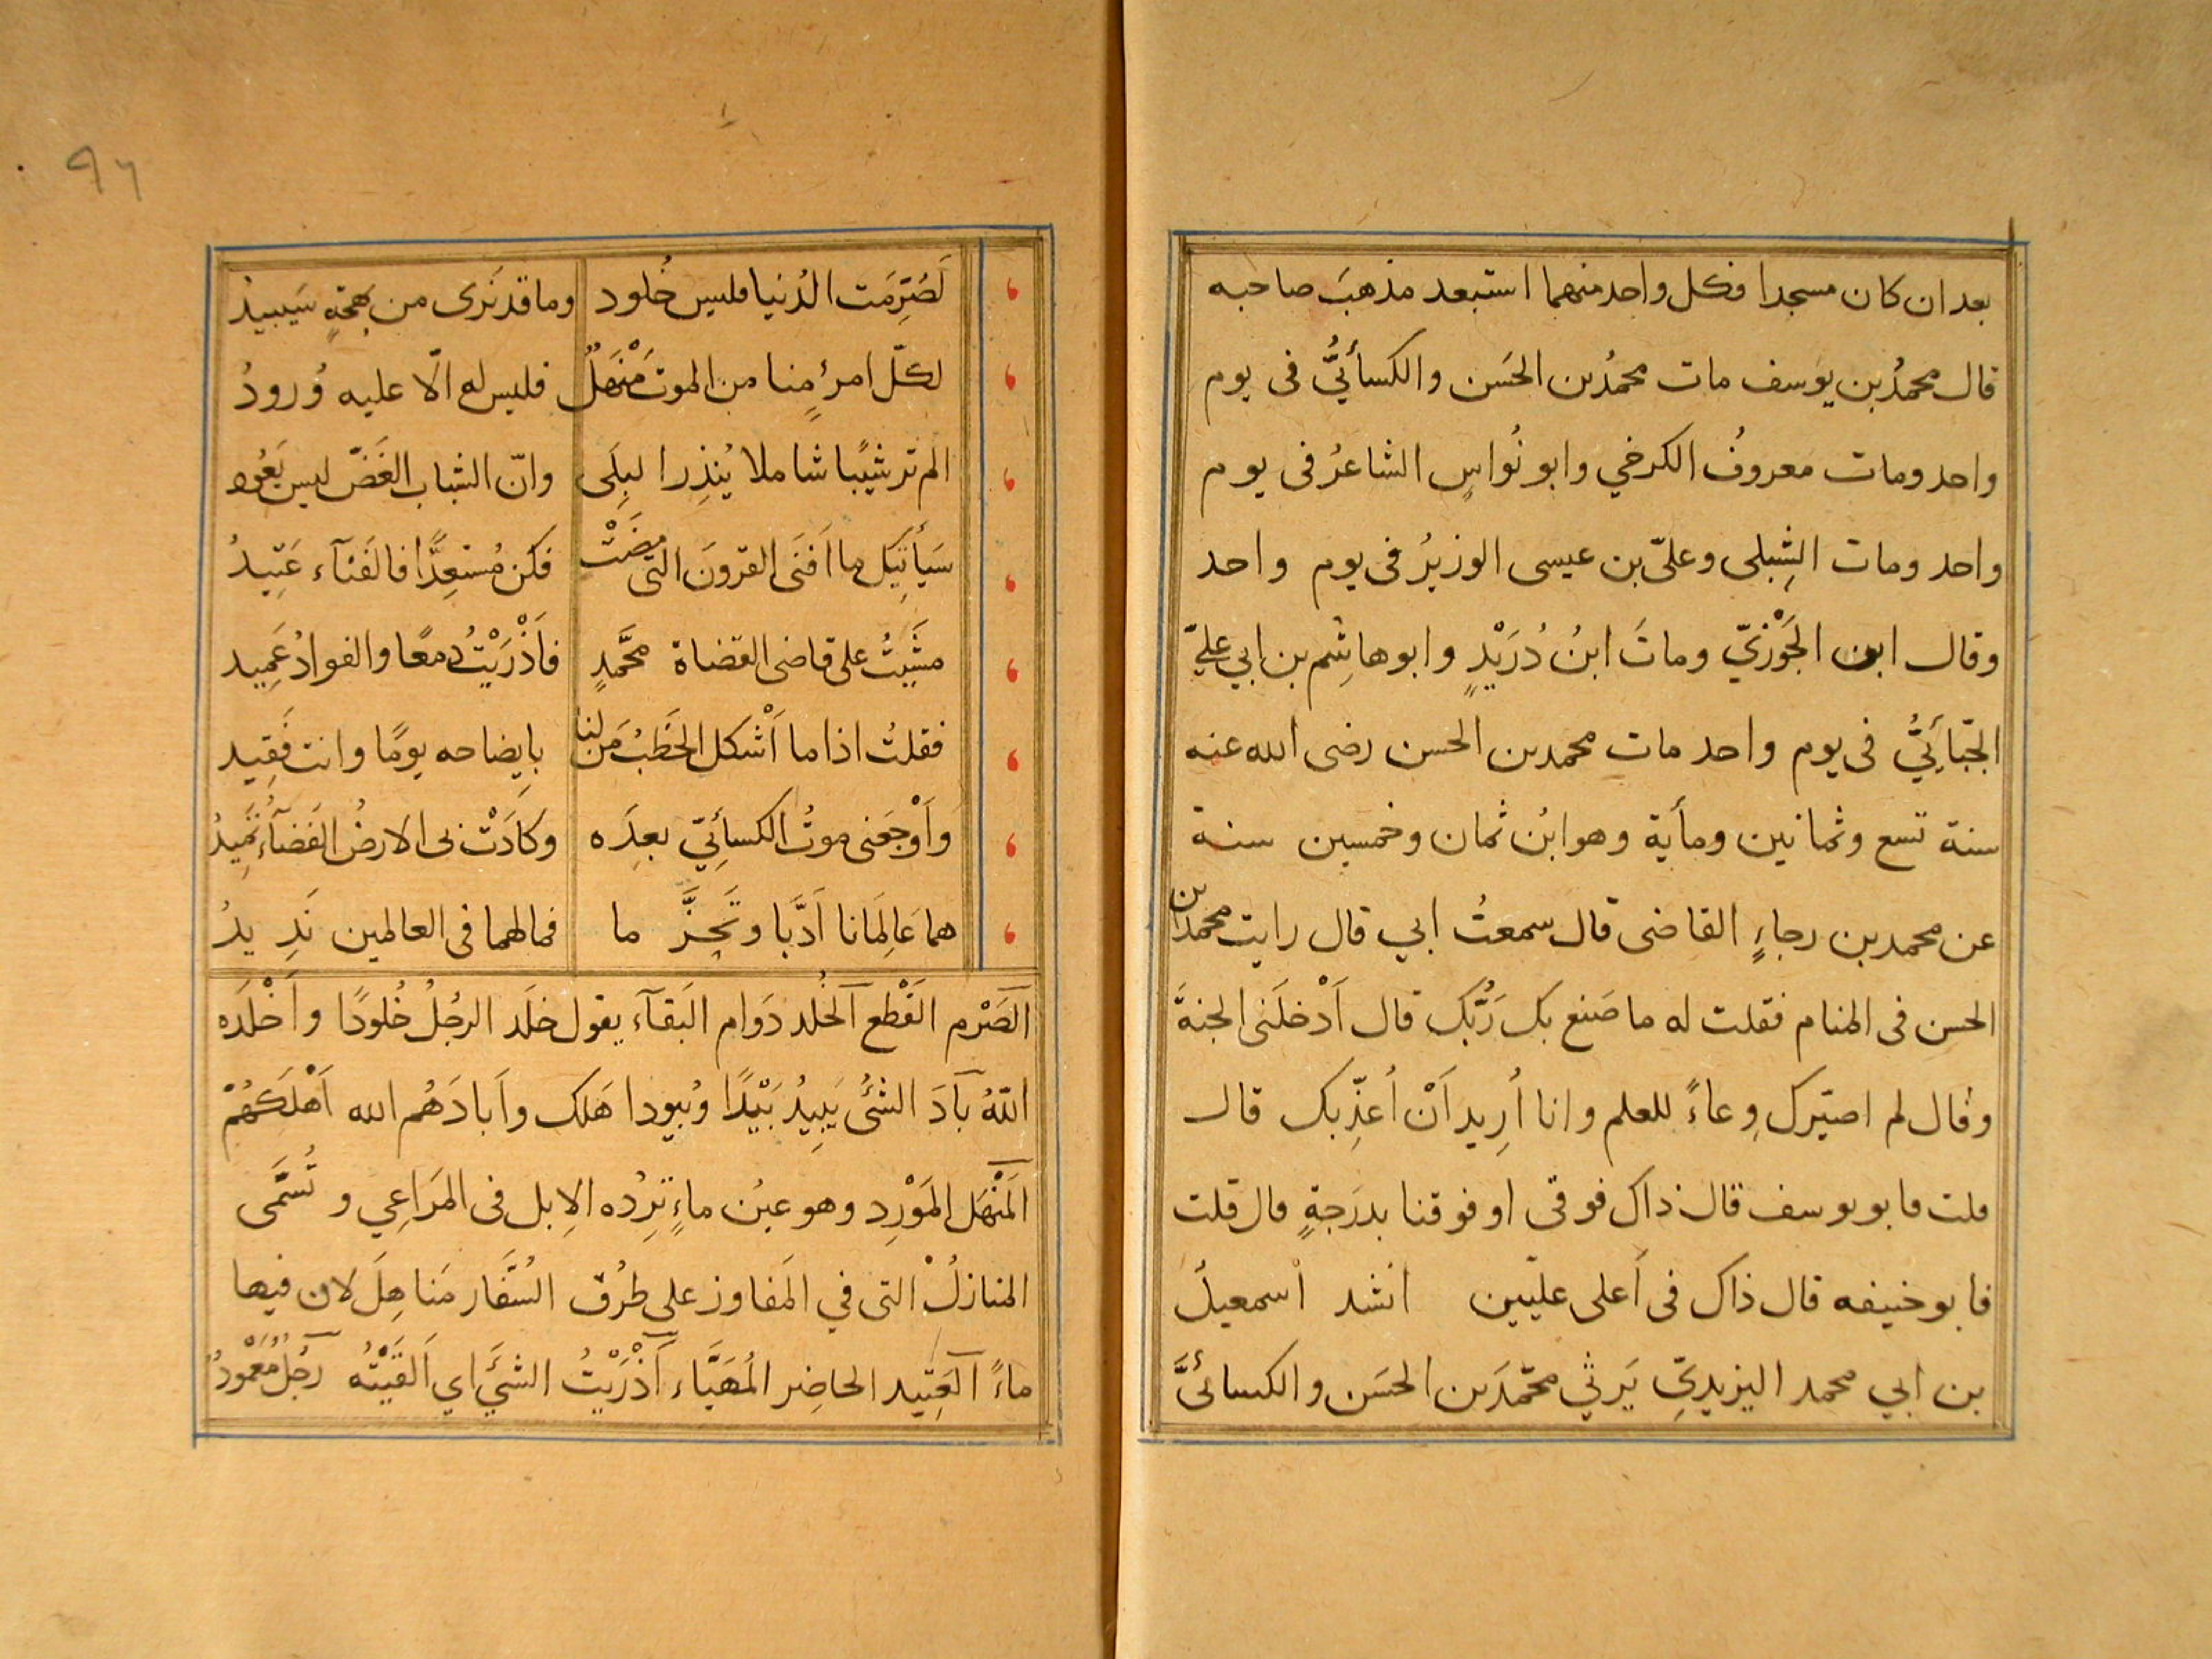 بعد ان كان مسجدا فكل واحد منهما استبعد مذهبَ صاحبه
قال محمدُ بن يوَسف مات محمدُ بن الحَسَن والكسأئيُّ فى يوم
واحد ومات معروفُ الكرخي وابو نُواسٍ الشاعرُ فى يوم
واحد ومات الشِبلى وعلىّ بن عيسى الوزيرُ فى يوم واحد
وقال ابن الجَوْزيّ وماتَ ابنُ دُرَيْدٍ وابو هاشِم بن ابي عليّ
الجبّائيُّ فى يوم واحد مات محمد بن الحسن رضى الله عنه
سنة تسع وثمانين ومأية وهو ابنُ ثمان وخمسين سنة
عن محمد بن رجاءٍ القاضى قال سمعتُ ابي قال رايت محمد بن
الحسن فى المنام فقلت له ما صَنع بك رَبُّك قال اَدْخلَنى الجنةَ
وقال لم اصيّرك وِعاءً للعلم وانا اُرِيد اَنْ اُعذِّبك قال
قلت فابو يوسف قال ذاك فوقى او فوقنا بدرَجةٍ قال قلت
فابو حنيفه قال ذاك فى اَعلى عليّين انشد اسمعيلُ
بن ابي محمد اليزيديّ يَرثي محمّدَ بن الحسَن والكسائىَّ
٩٦
لَصُرِّمَت الدُنيا فليس خُلود وما قد نَرَى من بهجةٍ سَيَبيدُ
لكلّ امرءٍ منا من الموت مَنْهَلٌ فليس له الّا عليه وُرودُ
الم تر شَيْبًا شاملا يُنذِر البِلَى وانّ الشباب الغَضّ ليس يَعُود
سَيأتيك ما اَفنَى القرونَ التى مضَتْ فكن مُستعِدًّا فالفَنآء عَتِيدُ
مشيَّتُ على قاضى القضاة محمَّدٍ فاَذْرَيْتُ دمعًا والفوادُ عَمِيد
فقلتُ اذا ما اَشْكل الخَطبُ مَن لنا بايضاحه يومًا وانت فَقِيد
واَوْجَعَنى موتُ الكسأئيّ بعدَه وكادَتْ بى الارضُ الفَضآءُ تَمِيدُ
هما عَالِمَانا اَدَّبا وتَخَرَّ ما فما لهما فى العالمين نَدِ يدُ
الصَرْم القَطْع الخُلد دَوام البَقآء يقول خلَد الرجُلُ خُلودًا واَخْلَده
اللهُ بآدَ الشئُ يَبِيدُ بَيْدًا وبُيودا هَلك واَبادَهُم الله اَهْلَكَهُمْ
المَنْهَل المَوْرِد وهو عينُ ماءٍ تَرِدُه الاِبل فى المَرَاعِي وتُسَمَّى
المنازلُ التى في المَفاوز على طرُق السُفَّار مَناهِلَ لان فيها
ماءً العَتِيد الحاضِر المُهَيَّاء اَذْرَيْتُ الشيَ اي اَلقَيْتُه رجُلٌ مَعْمُودٌ